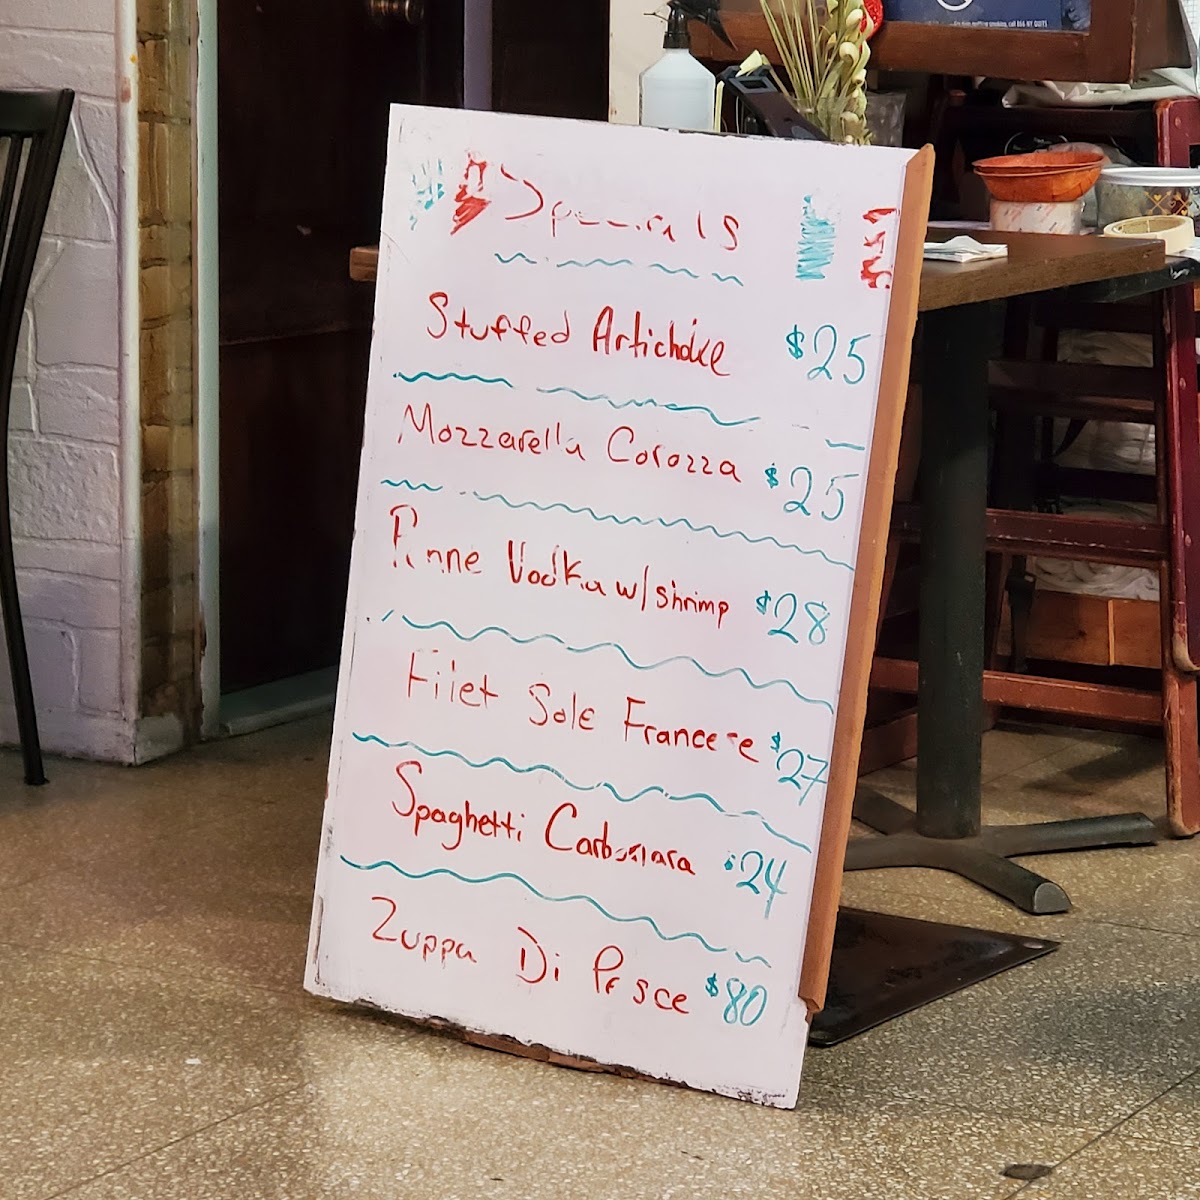 Specials
Stuffed Artichoke $25
Mozzarella Corozza $25
Penne Vodka w/shrimp $28
Filet Sole Francese $27
Spaghetti Carbonara $24
Zuppa Di Pesce $80